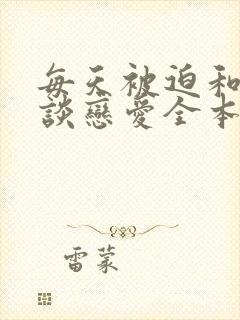 每天被迫和
談戀愛全本
雷蒙